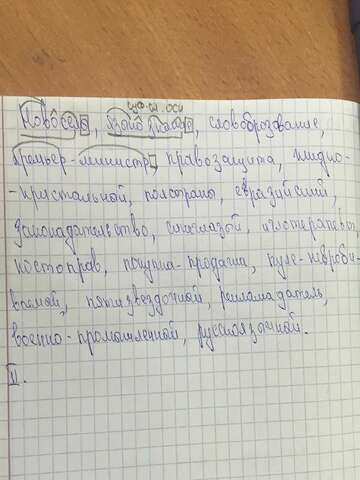 суф. ся. осн
Новосёлы, языкознание, словобразование,
премьер-министр, правозащита, жидко-
-кристальной, полстраны, евразийский,
законодательство, синеглазой, иглотерапевт,
костоправ, покупка-продажа, пуле-непроби-
ваемой, пятизвездочной, рекламадатель,
военно-промышленной, русскоязычной.
II.